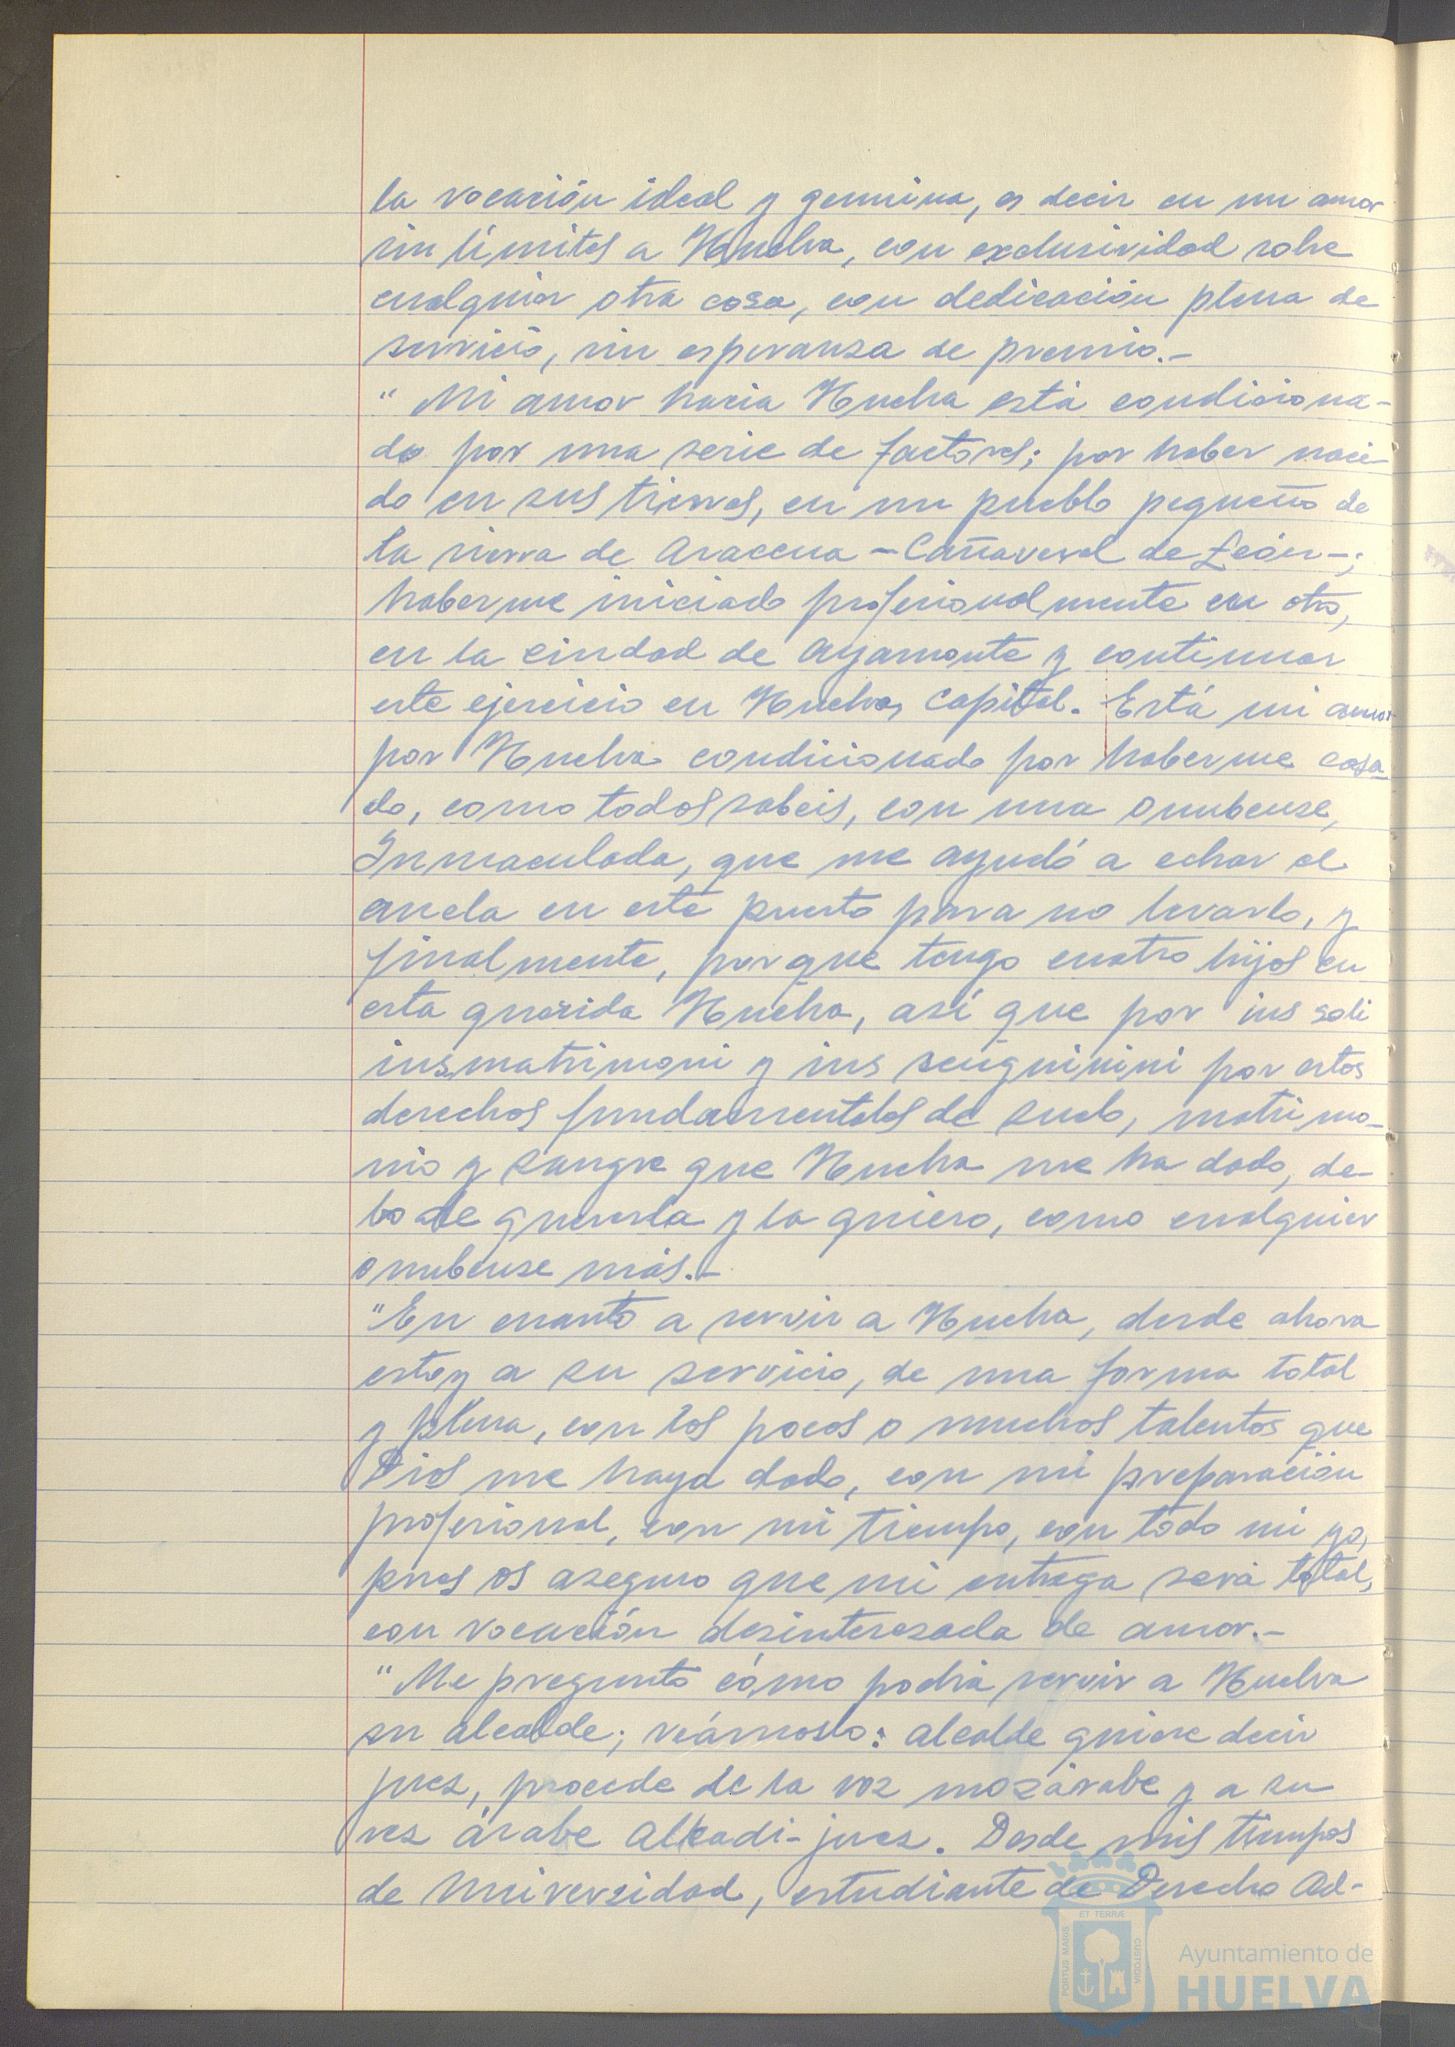 la vocación ideal y genuina, es decir en un amor
sin límites a Huelva, con exclusividad sobre
cualquier otra cosa, con dedicación plena de
servicio, sin esperanza de premio.-
"Mi amor hacia Huelva está condiciona-
do por una serie de factores; por haber naci-
do en sus tierras, en un pueblo pequeño de
la sierra de Aracena - Cañaveral de León -;
haberme iniciado profesionalmente en otro,
en la ciudad de Ayamonte y continuar
este ejercicio en Huelva, Capital. Está mi amor
por Huelva condicionado por haberme casa-
do, como todos sabeis, con una onubense,
Inmaculada, que me ayudó a echar el
ancla en este puerto para no levarlo, y
finalmente, porque tengo cuatro hijos en
esta querida Huelva, así que por ius soli
ius matrimoni y ius senguinini por estos
derechos fundamentales de suelo, matrimo-
nio y sangre que Huelva me ha dado, de-
bo de quererla y la quiero, como cualquier
onubense más.-
"En cuanto a servir a Huelva, desde ahora
estoy a su servicio, de una forma total
y plena, con los pocos o muchos talentos que
Dios me haya dado, con mi preparación
profesional, con mi tiempo, con todo mi yo,
pues os aseguro que mi entrega será total,
con vocación desinteresada de amor.-
"Me pregunto cómo podría servir a Huelva
su alcalde; veámoslo: alcalde quiere decir
juez, procede de la voz mozárabe y a su
vez árabe Alkadi-juez. Desde mis tiempos
de Universidad, estudiante de Derecho Ad-
PORTUS MARIS
ET TERRÆ
CUSTODIA
Ayuntamiento de
HUELVA